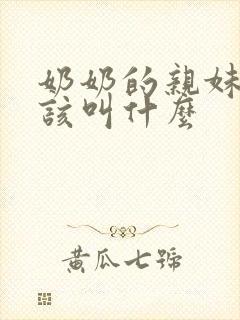 奶奶的親妹
該叫什麼
黃瓜七號